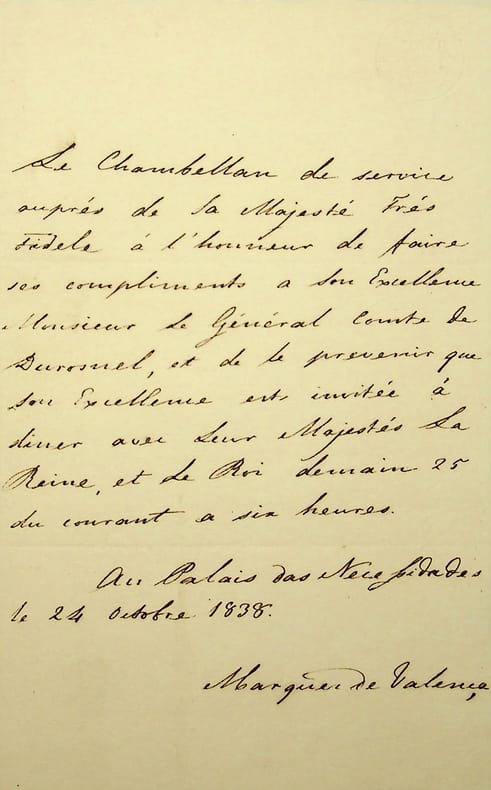 Le Chambellan de service
auprés de Sa Majesté Trés
Fidele à l'honneur de faire
ses compliments a son Excellence
Monsieur le Général Comte de
Durosnel, et de le prevenir que
son Excellence est invitée à
diner avec Leur Majestés La
Reine, et Le Roi demain 25
du courant a six heures.
Au Palais das Necessidades
le 24 Octobre 1838.
Marquez de Valença